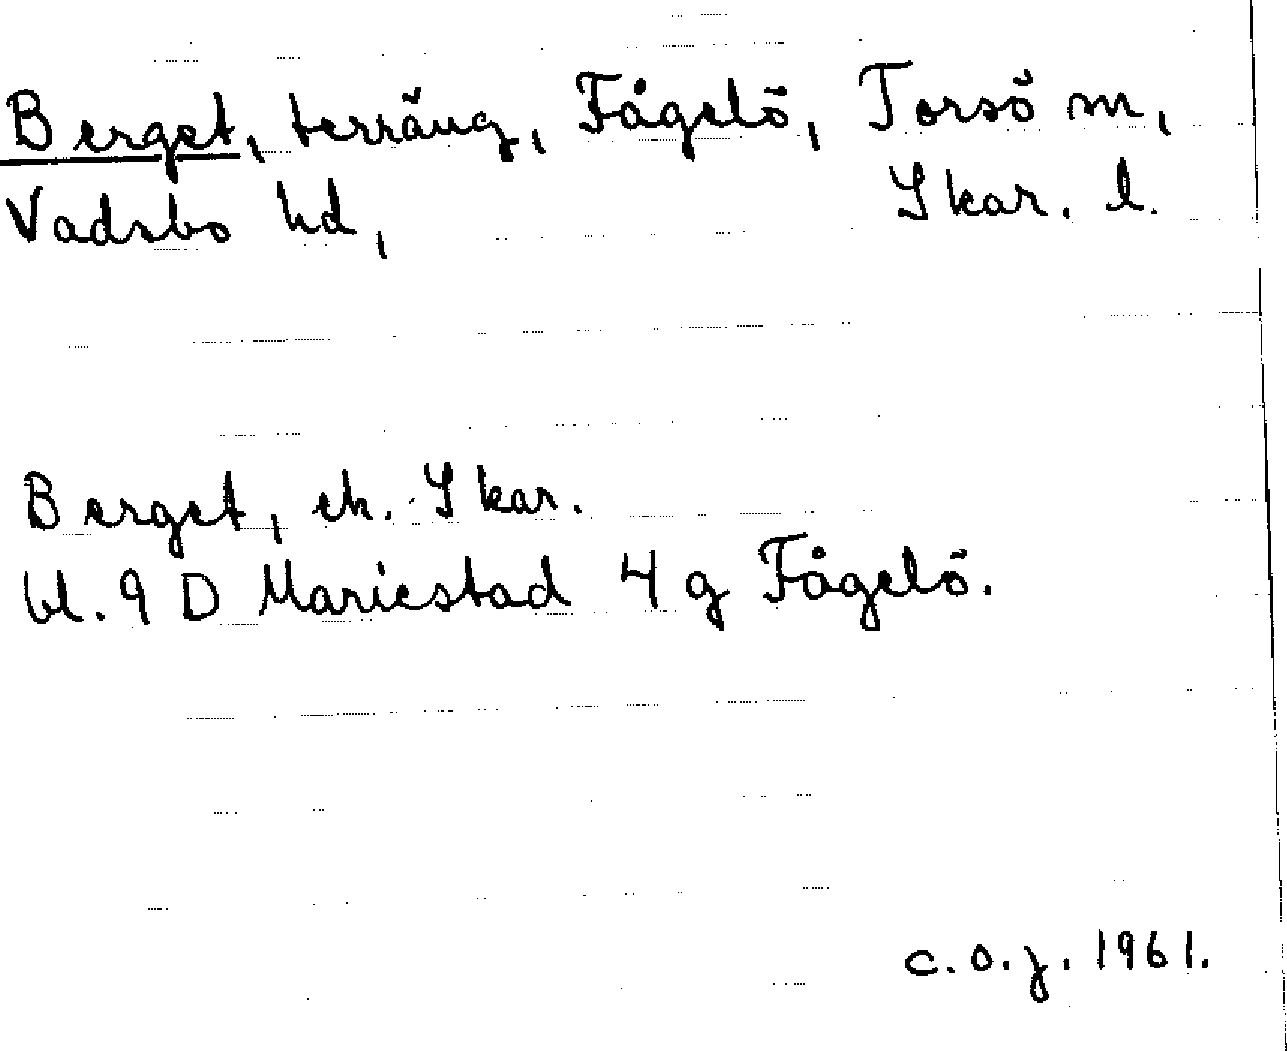 Berget, terräng, Fågelö, Torsö sn,
Vadsbo hd, Skar. l.
Berget, ek. Skar.
bl. 9 D Mariestad 4 g Fågelö.
C.O.J. 1961.